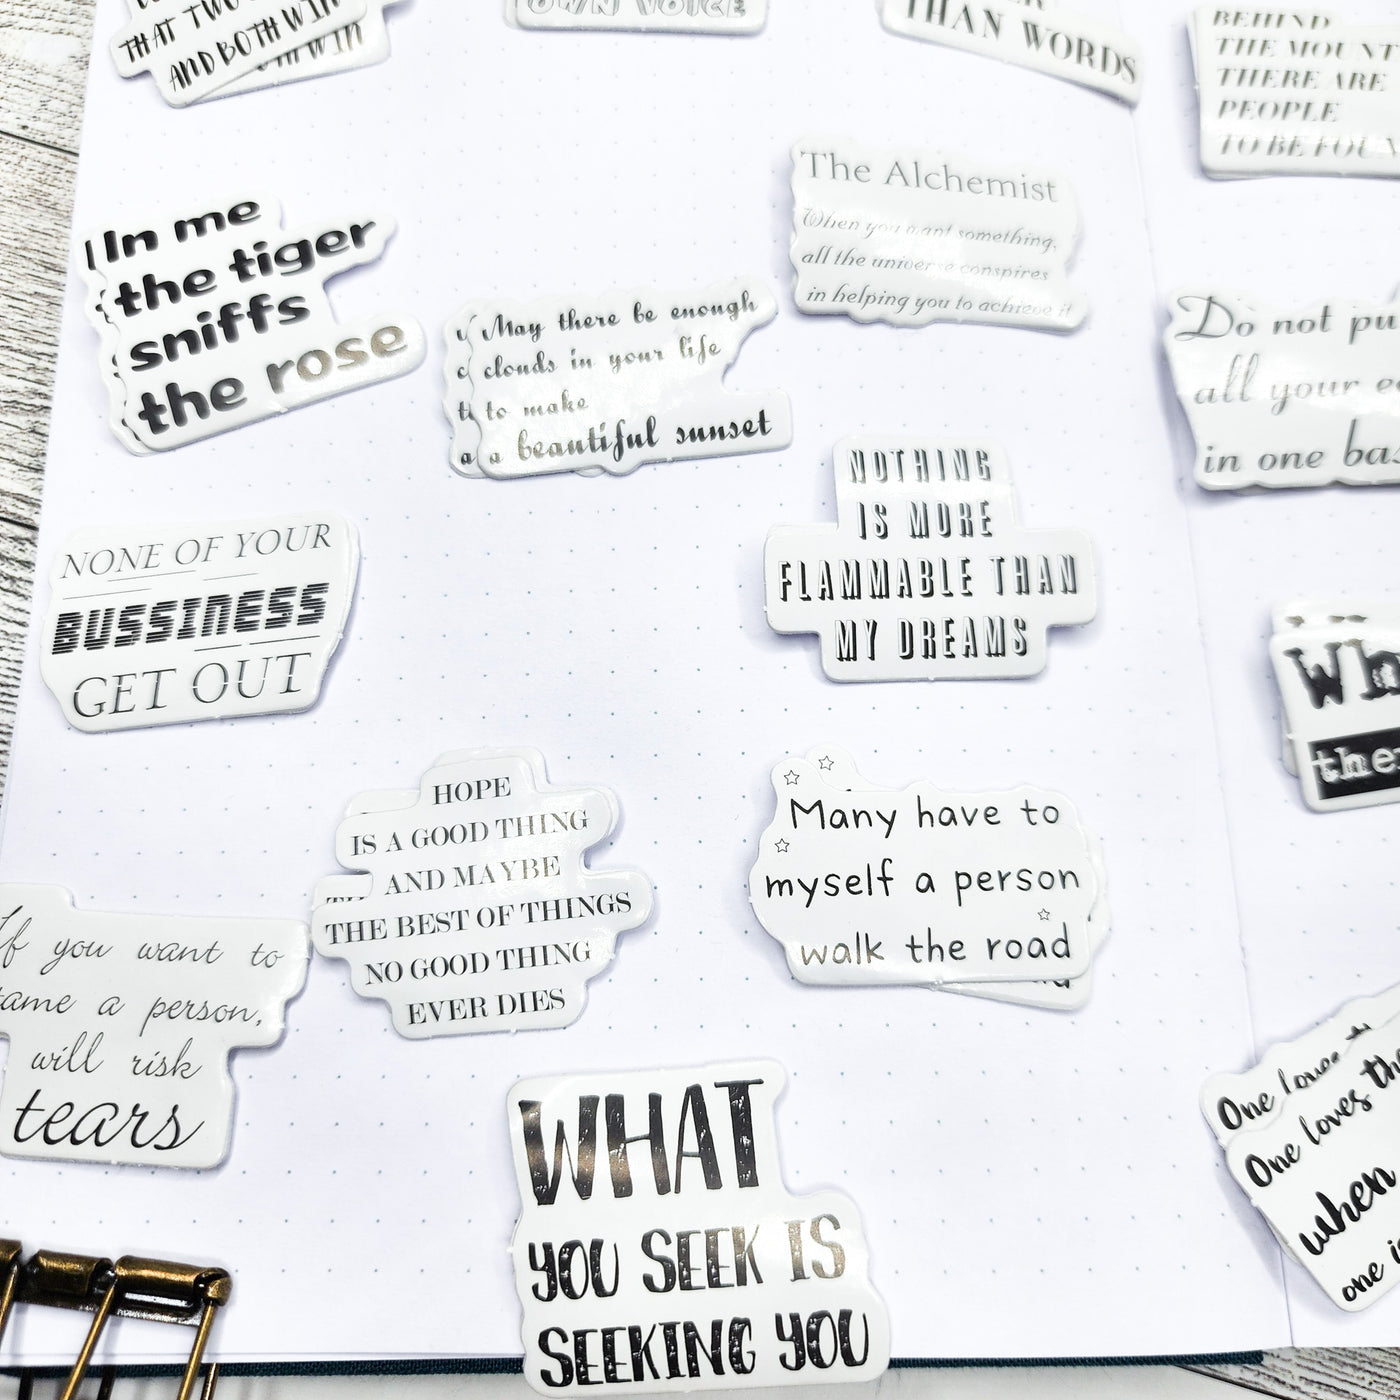 THAT TWO
AND BOTH WIN
OWN VOICE
THAN WORDS
BEHIND
THE MOUNT
THERE ARE
PEOPLE
TO BE FOUN
The Alchemist
When you want something,
all the universe conspires
in helping you to achieve it
In me
the tiger
sniffs
the rose
May there be enough
clouds in your life
to make
a beautiful sunset
Do not pu
all your e
in one bas
NOTHING
IS MORE
FLAMMABLE THAN
MY DREAMS
NONE OF YOUR
BUSSINESS
GET OUT
Wh
the
HOPE
IS A GOOD THING
AND MAYBE
THE BEST OF THINGS
NO GOOD THING
EVER DIES
Many have to
myself a person
walk the road
If you want to
tame a person,
will risk
tears
One loves
One loves the
when
one i
WHAT
YOU SEEK IS
SEEKING YOU